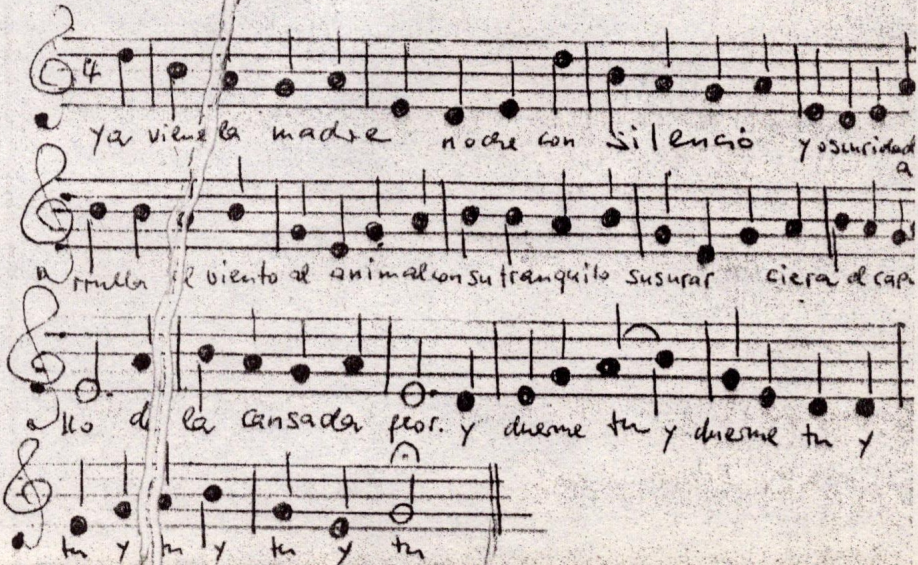 4
ya viene la madre noche con silencio y oscuridad
a
rrulla el viento al animal con su tranquilo susurar ciera el capu
llo de la cansada flor. y duerme tu y duerme tu y
tu y tu y tu y tu